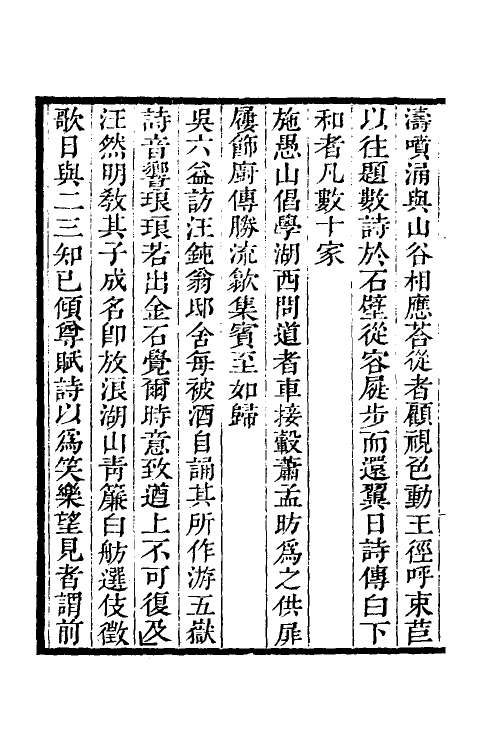 濤噴涌與山谷相應苔從者顧視色動王徑呼束苣
以往題數詩於石壁從容屣步而還翼日詩傳白下
和者凡數十家
施愚山倡學湖西問道者車接轂蕭孟昉爲之供屝
屨飾廚傳勝流歙集賓至如歸
吳六益訪汪鈍翁邸舍每被酒自誦其所作游五嶽
詩音響琅琅若出金石覺爾時意致道上不可復及
汪然明敎其子成名卽放浪湖山靑簾白舫選伎徵
歌日與二三知已傾尊賦詩以爲笑樂望見者謂前